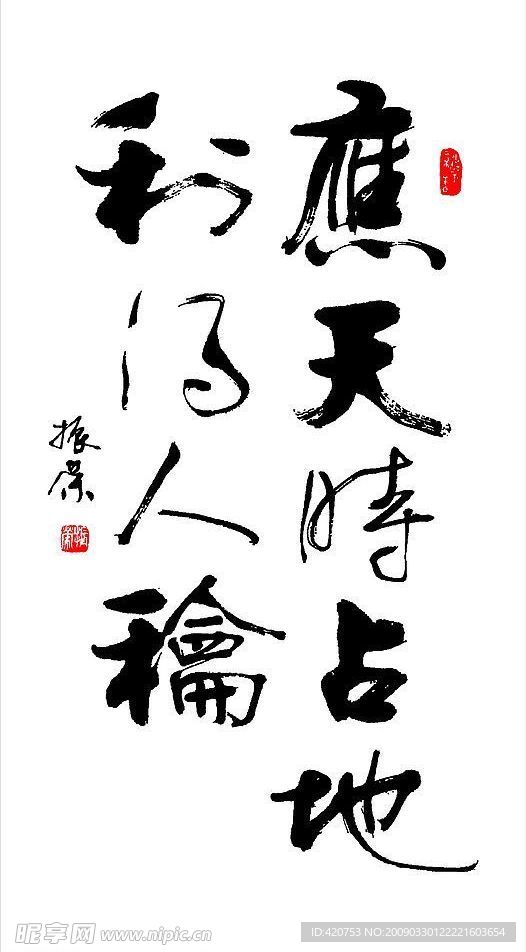 應天時占地
利得人龢
振
昵享网 www.nipic.cn
ID:420753 NO:20090330122221603654